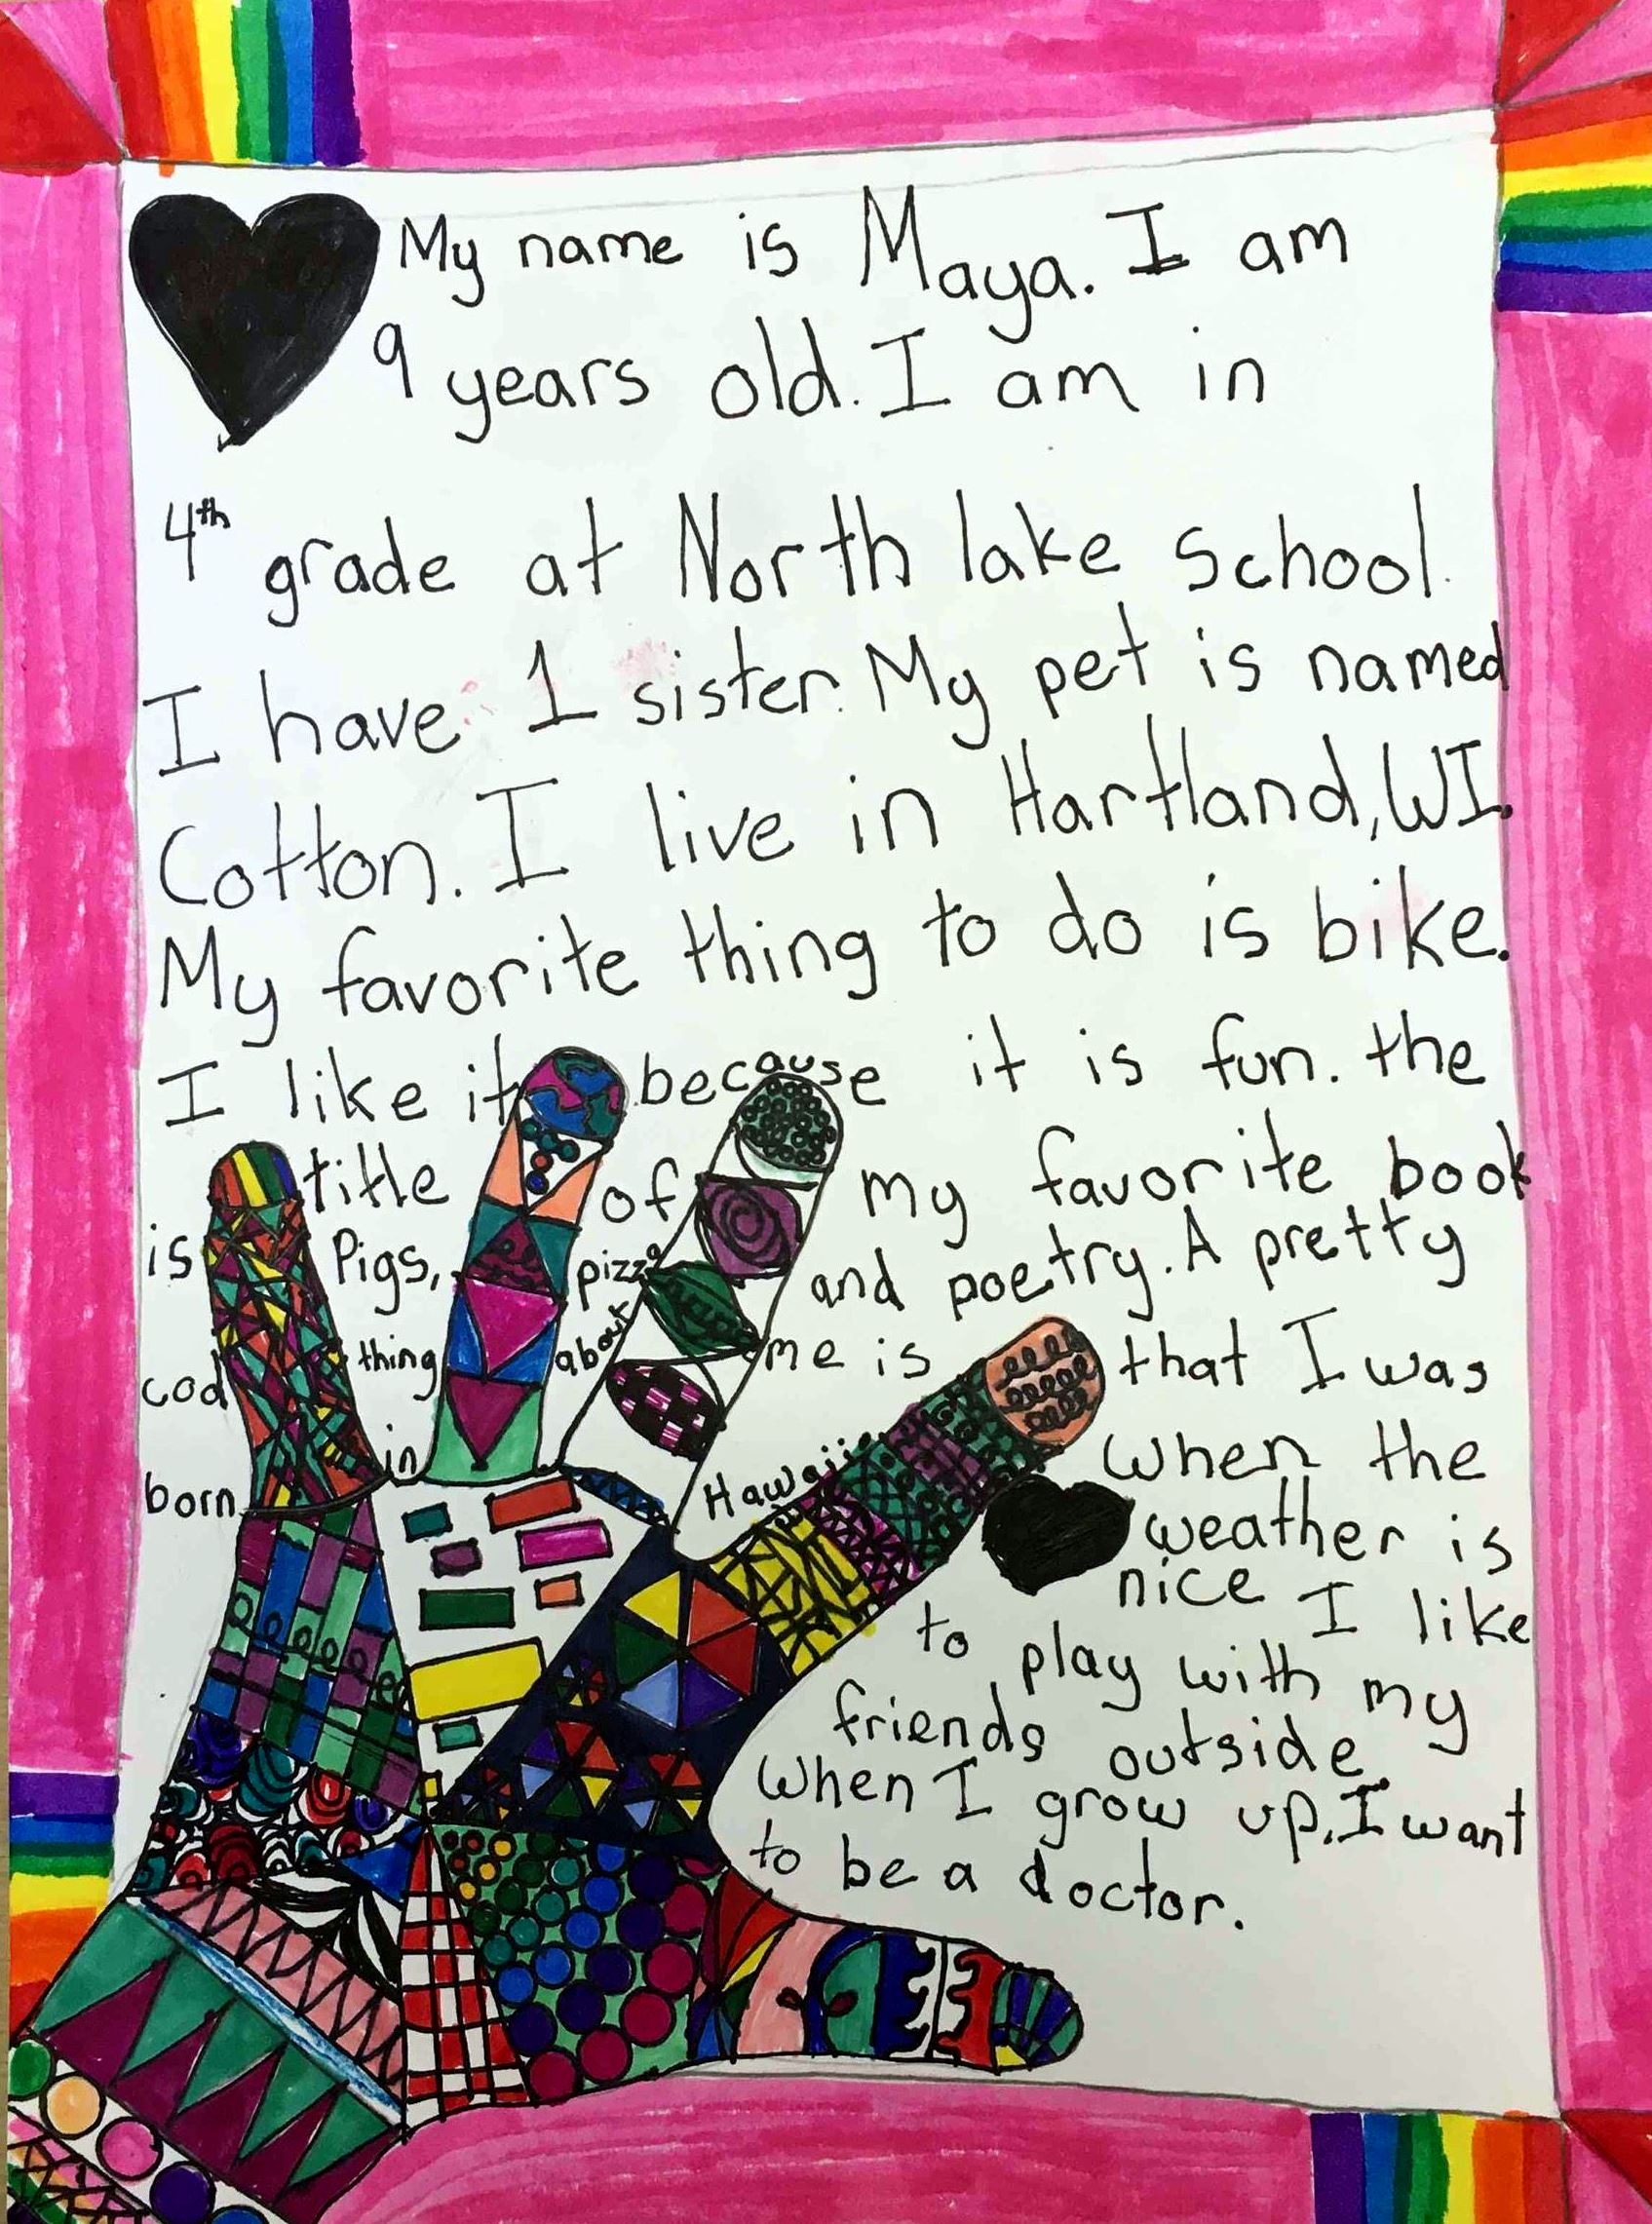 My name is Maya. I am
9 years old. I am in
4th grade at North lake School.
I have 1 sister. My pet is named
Cotton. I live in Hartland, WI.
My favorite thing to do is bike.
I like it because it is fun. the
title of my favorite book
is Pigs, pizza and poetry. A pretty
cod thing about me is that I was
born in Hawaii when the
weather is
nice I like
to play with my
friends outside
When I grow up, I want
to be a doctor.